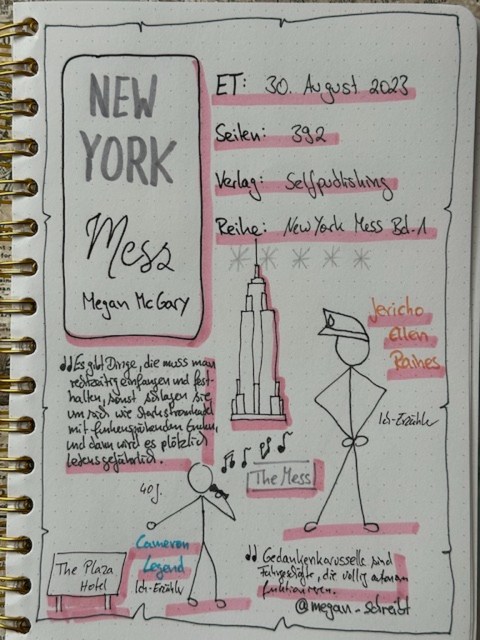 NEW
YORK
Mess
Megan McGary
ET: 30. August 2023
Seiten: 392
Verlag: Selfpublishing
Reihe: New York Mess Bd. 1
Es gibt Dinge, die muss man
rechtzeitig einfangen und fest-
halten, sonst schlagen sie
um sich wie Starkstromkabel
mit funkensprühenden Enden,
und dann wird es plötzlich
lebensgefährlich.
Jericho
Ellen
Raines
Ich-Erzähler
The Mess
40 J.
Cameron
Legend
Ich-Erzähler
The Plaza
Hotel
Gedankenkarussells sind
die völlig autonom
funktionieren.
@megan_schreibt